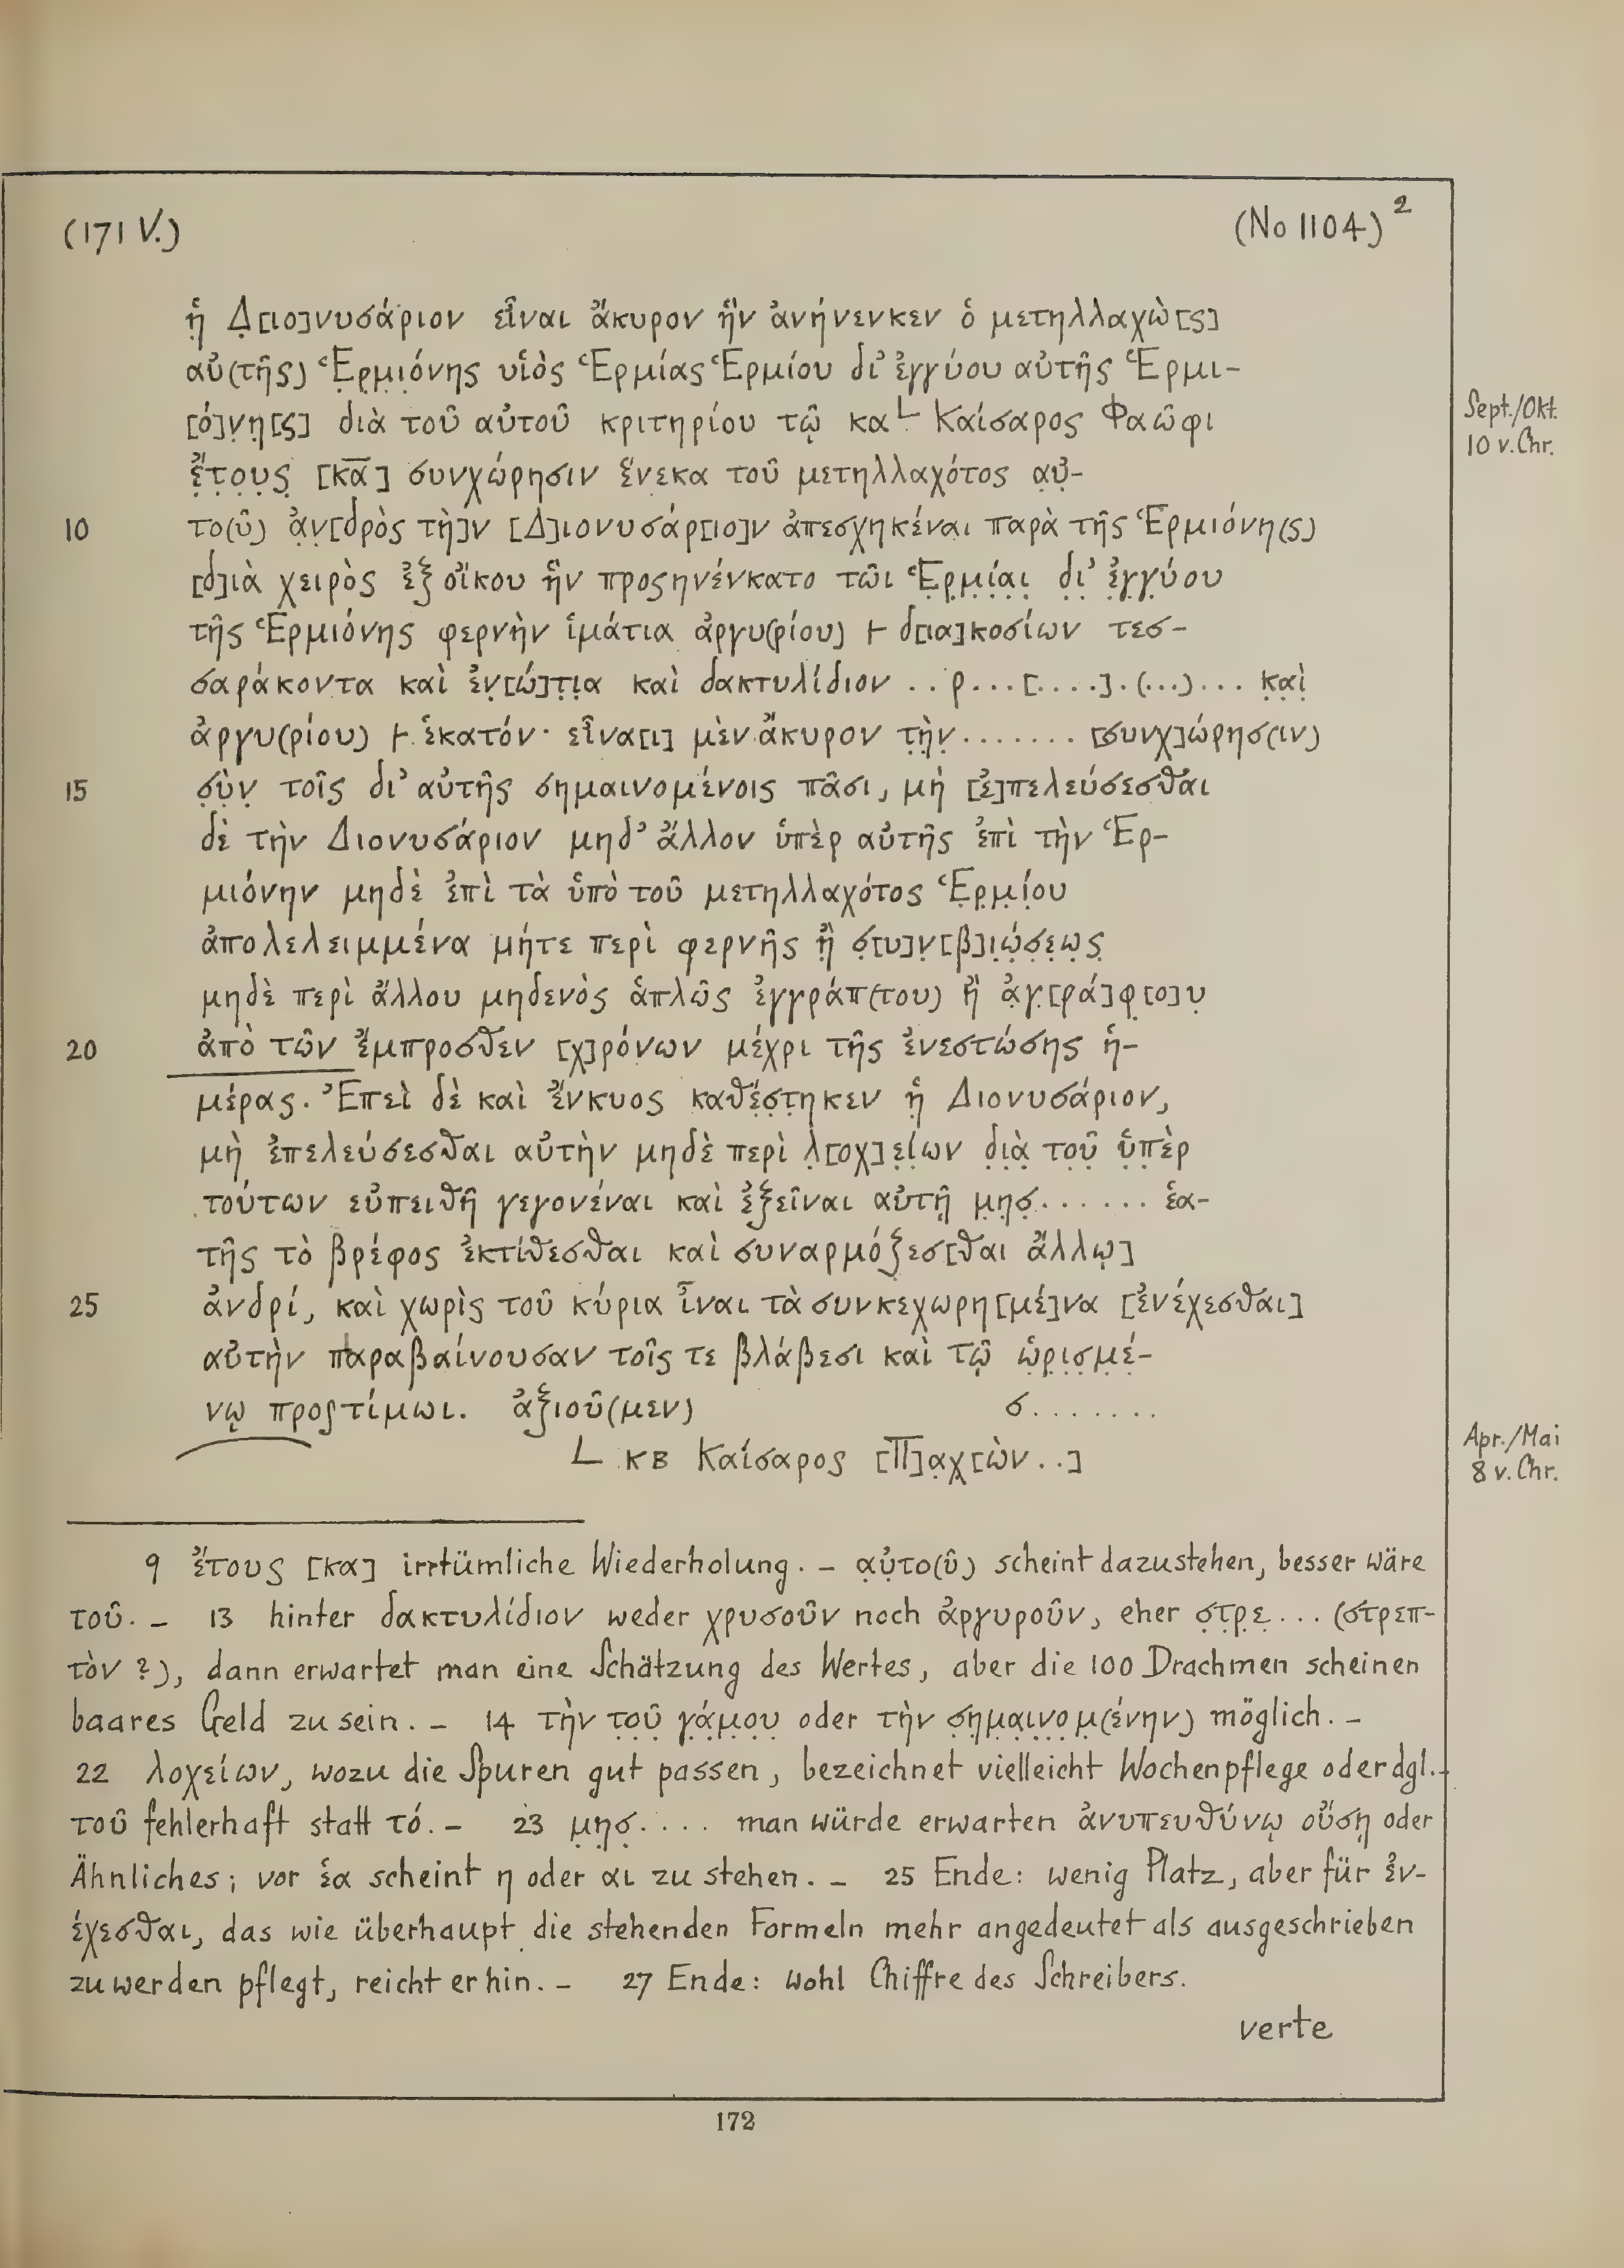 (171 V.) (No 1104) 2
ἡ̣ Δ̣[ιο]νυσάριον εἶναι ἄκυρον ἣν ἀνήνενκεν ὁ μετηλλαχὼ[ς]
αὐ(τῆς) Ἑ̣ρ̣μ̣ι̣όνης υἱὸς Ἑρμίας Ἑρμίου δι' ἐγγύου αὐτῆς Ἑρμι-
[ό]ν̣η̣[ς] διὰ τοῦ αὐτοῦ κριτηρίου τῷ κα L Καίσαρος Φαῶφι
Sept./Okt.
10 v. Chr.
ἔ̣τ̣ο̣υ̣ς̣ [κ̅α̅] συνχώρησιν ἕνεκα τοῦ μετηλλαχότος α̣ὐ̣-
10 το(ῦ) ἀ̣ν̣[δρὸς τὴ]ν [Δ]ιονυσάρ[ιο]ν ἀπεσχηκέναι παρὰ τῆς Ἑρμιόνη(ς)
[δ]ιὰ χειρὸς ἐξ οἴκου ἣν προςηνένκατο τῶι Ἑ̣ρ̣μ̣ί̣α̣ι̣ δ̣ι̣' ἐ̣γ̣γ̣ύου
τῆς Ἑρμιόνης φερνὴν ἱμάτια ἀργυ(ρίου) ⊢ δ[ια]κοσίων τεσ-
σαράκοντα καὶ ἐν̣[ώ]τ̣ι̣α καὶ δακτυλίδιον . . ρ . . . [. . . .] . (...) . . . κ̣α̣ὶ̣
ἀργυ(ρίου) ⊢ ἑκατόν· εἶνα[ι] μὲν ἄκυρον τ̣ὴ̣ν̣ . . . . . . . [συνχ]ώρησ(ιν)
15 σ̣ὺ̣ν̣ τοῖς δι' αὐτῆς σημαινομένοις πᾶσι, μὴ [ἐ]πελεύσεσθαι
δὲ τὴν Διονυσάριον μηδ' ἄλλον ὑπὲρ αὐτῆς ἐπὶ τὴν Ἑρ-
μιόνην μηδὲ ἐπὶ τὰ ὑπὸ τοῦ μετηλλαχότος Ἑ̣ρ̣μ̣ί̣ου
ἀπολελειμμένα μήτε περὶ φερνῆς ἢ̣ σ̣[υ]ν̣[β]ι̣ώ̣σ̣ε̣ω̣ς̣
μηδὲ περὶ ἄλλου μηδενὸς ἁπλῶς ἐγγράπ(του) ἢ ἀ̣γ̣[ρά]φ̣[ο]υ̣
20 ἀπὸ τῶν ἔμπροσθεν [χ]ρόνων μέχρι τῆς ἐνεστώσης ἡ-
μέρας. Ἐπεὶ δὲ καὶ ἔνκυος καθέ̣σ̣τ̣ηκεν ἡ̣ Διονυσάριον,
μὴ ἐπελεύσεσθαι αὐτὴν μηδὲ περὶ λ̣[οχ]ε̣ί̣ων δ̣ι̣ὰ̣ τ̣ο̣ῦ̣ ὑ̣π̣ὲ̣ρ
τούτων εὐπειθῆ γεγονέναι καὶ ἐ̣ξεῖναι αὐτῇ μ̣η̣σ̣ . . . . . . ἑα-
τῆς τὸ βρέφος ἐκτίθεσθαι καὶ συναρμόζεσ[θαι ἄλλῳ]
25 ἀνδρί, καὶ χωρὶς τοῦ κύρια ἶναι τὰ συνκεχωρη[μέ]να [ἐνέχεσθαι]
αὐτὴν παραβαίνουσαν τοῖς τε βλάβεσι καὶ τῷ ὡ̣ρ̣ι̣σ̣μ̣έ̣-
νῳ προςτίμωι. ἀξιοῦ(μεν) σ . . . . . . .
L κβ Καίσαρος [Π]α̣χ̣[ὼν . .]
Apr./Mai
8 v. Chr.
9 ἔτους [κα] irrtümliche Wiederholung. – α̣ὐ̣το(ῦ) scheint dazustehen, besser wäre
τοῦ. – 13 hinter δακτυλίδιον weder χρυσοῦν noch ἀργυροῦν, eher σ̣τ̣ρ̣ε̣ . . . (στρεπ-
τὸν ?), dann erwartet man eine Schätzung des Wertes, aber die 100 Drachmen scheinen
baares Geld zu sein. – 14 τὴν τ̣ο̣ῦ̣ γ̣ά̣μ̣ο̣υ̣ oder τὴν σ̣η̣μ̣α̣ι̣ν̣ο̣μ̣(ένην) möglich. –
22 λοχείων, wozu die Spuren gut passen, bezeichnet vielleicht Wochenpflege oder dgl. –
τοῦ fehlerhaft statt τό. – 23 μ̣η̣σ̣ . . . . man würde erwarten ἀνυπευθύνῳ οὔσῃ oder
Ähnliches; vor ἑα scheint η oder αι zu stehen. – 25 Ende: wenig Platz, aber für ἐν-
έχεσθαι, das wie überhaupt die stehenden Formeln mehr angedeutet als ausgeschrieben
zu werden pflegt, reicht er hin. – 27 Ende: wohl Chiffre des Schreibers.
verte
172